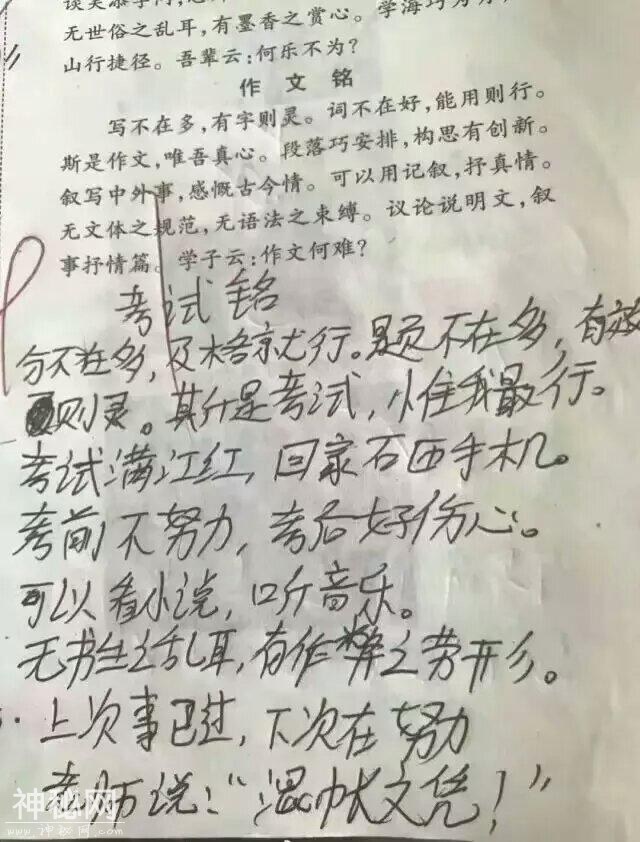 无世俗之乱耳,有墨香之赏心。学海巧为舟,
山行捷径。吾辈云:何乐不为?
作文铭
写不在多,有字则灵。词不在好,能用则行。
斯是作文,唯吾真心。段落巧安排,构思有创新。
叙写中外事,感慨古今情。可以用记叙,抒真情。
无文体之规范,无语法之束缚。议论说明文,叙
事抒情篇。学子云:作文何难?
考试铭
分不在多,及格就行。题不在多,有效
则灵。其什是考试,惟我最行。
考试满江红,回家石西手机。
考前不努力,考后好伤心。
可以看小说,听音乐。
无书生之乱耳,有作弊之劳形。
上次事已过,下次在努力
老师说:“混帐文凭!”
神秘网
www.神秘网.com